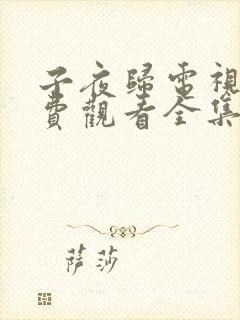 子夜歸電視
費觀看全集
萨莎